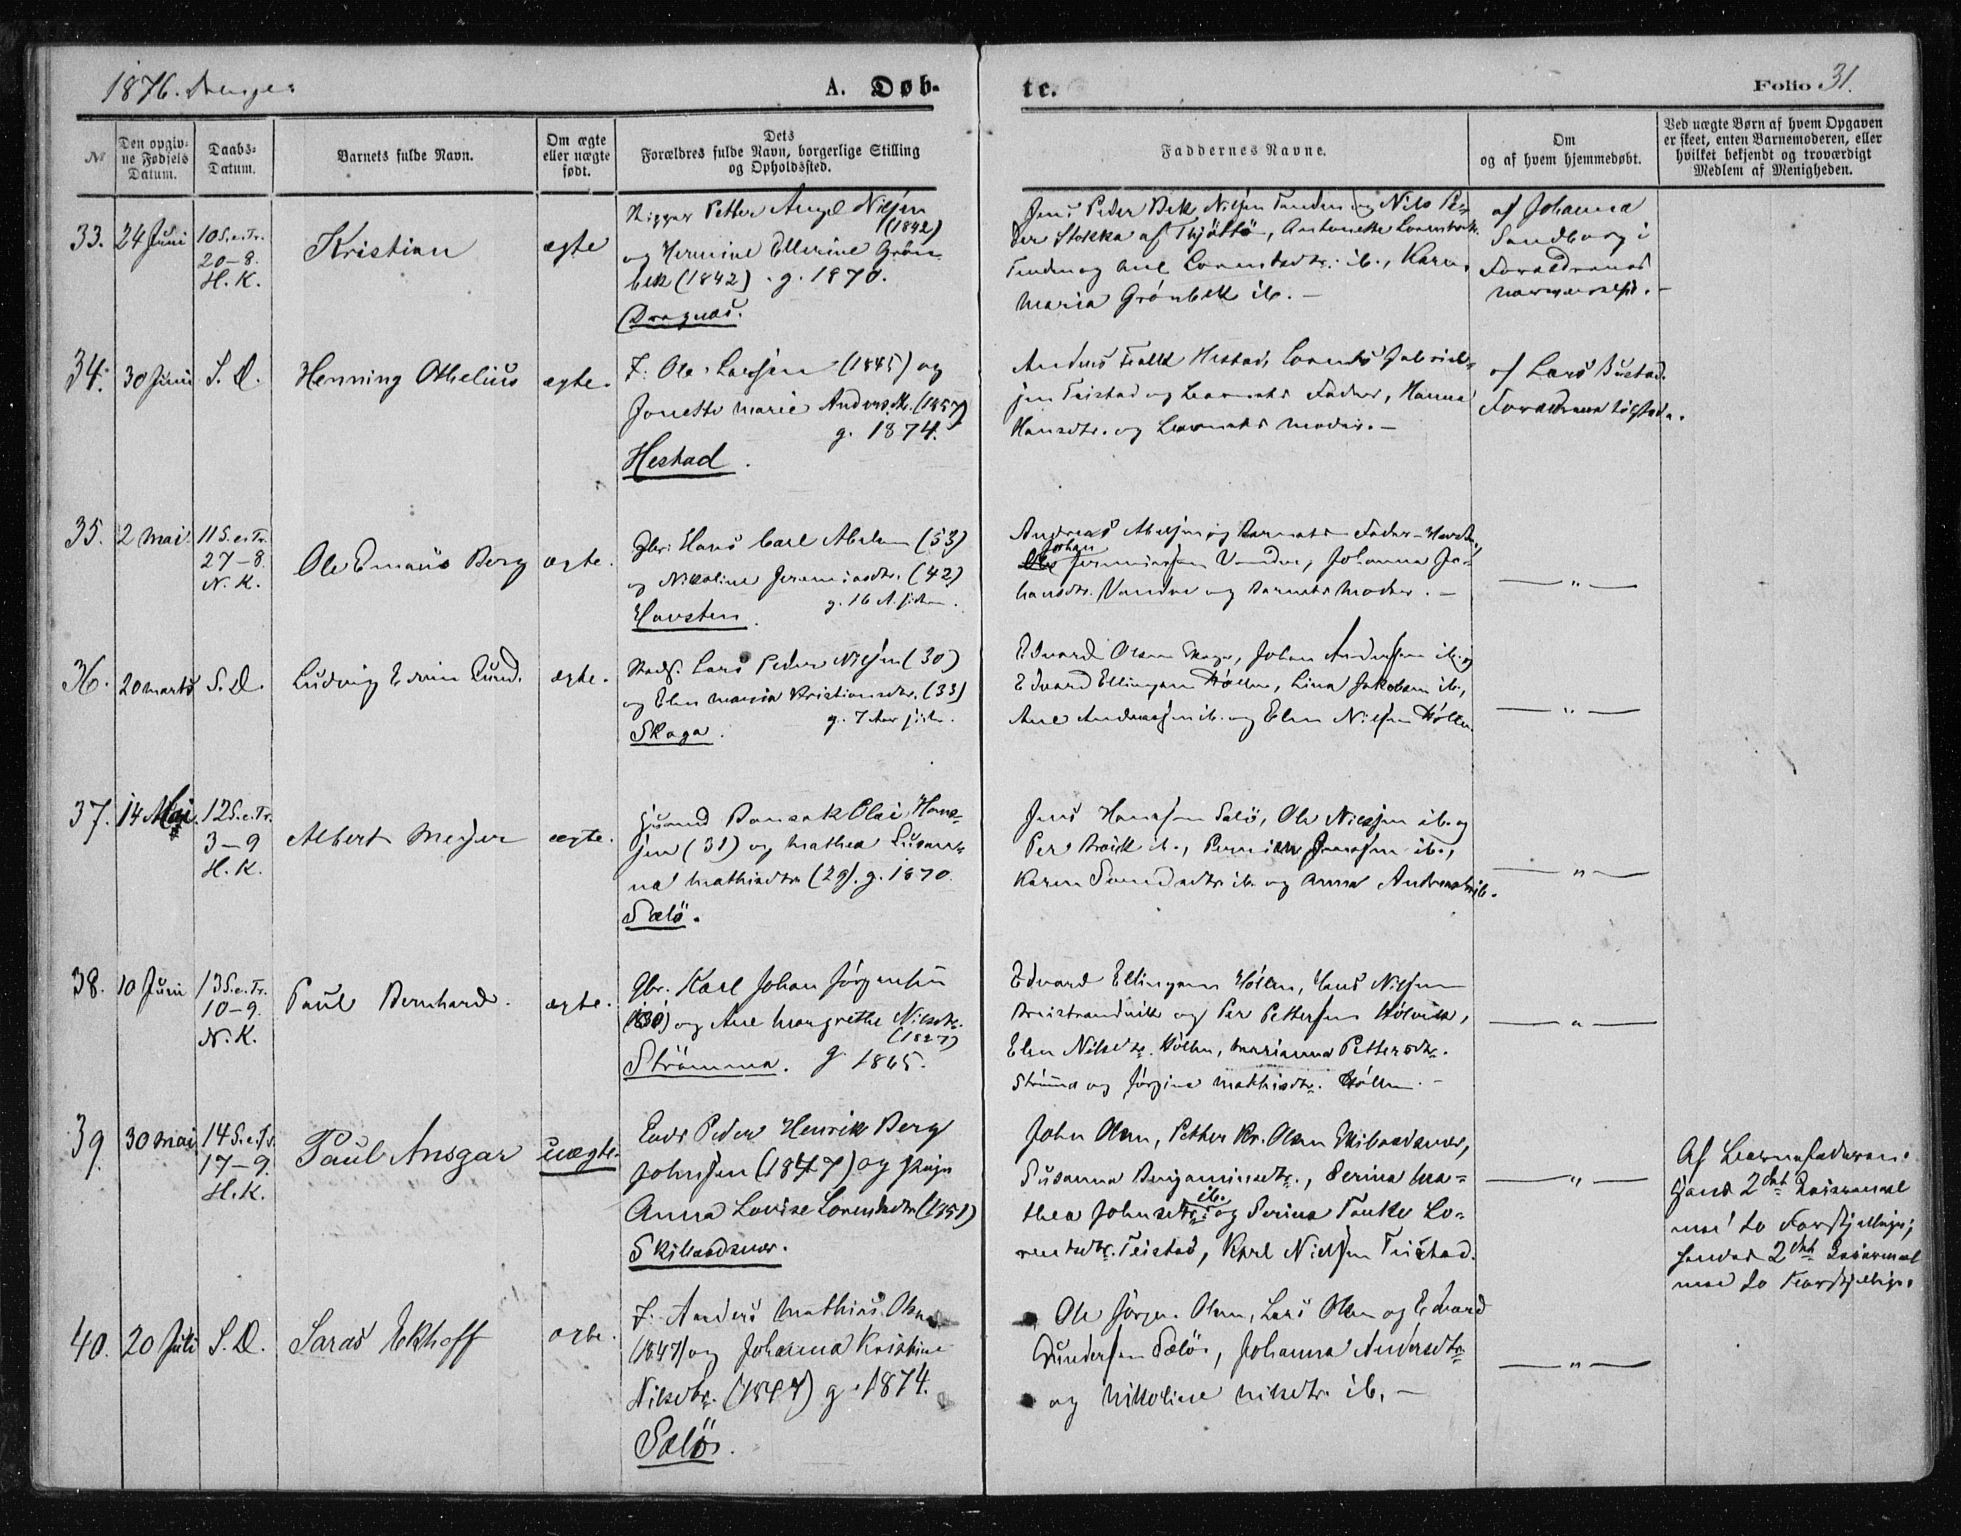 1876. Drenge.
A. Døb-
te.
Folio 31.
№
Den opgiv-
ne Fødsels
Datum.
Daabs-
Datum.
Barnets fulde Navn.
Om ægte
eller uægte
født.
Dets
Forældres fulde Navn, borgerlige Stilling
og Opholdssted.
Faddernes Navne.
Om
og af hvem hjemmedøbt.
Ved uægte Børn af hvem Opgaven
er skeet, enten Barnemoderen, eller
hvilket bekjendt og troværdigt
Medlem af Menigheden.
33. 24 Juni
10 S. e. Tr.
20-8.
H. K.
Kristian
ægte
Petter Angel Nilsen
(1842)
og Hermine Ellerine Grøn-
bek (1842). g. 1870.
Dragnæs.
Jens Peder Bek Nilsen og Nils Pe-
der Stokka af Thjøttø, Antonette
og Ane Lorentsdtr. ib., Karen
Maria Grønbek ib. -
af Johanna
Sandborg i
Forældrenes
nærværelse. -
34. 30 Juni
S. D.
Henning Othelius
ægte.
F. Ole Larsen (1845) og
Jonette Marie Andersdtr. (1857)
g. 1874.
Hestad.
Anders Falk Hestad, Lorents Gabriel-
sen Teistad og Barnets Fader, Hanna
Hansdtr. og Barnets Moder. -
af Lars Bustad.
Forældrene tilstede.
35. 2 Mai.
11 S. e. Tr.
27-8.
N. K.
Ole Emaus Berg
ægte.
Gbr. Hans Carl Abelsen (53)
og Nikoline Jeremiasdtr. (42)
g. 16 A. siden.
Havsten.
Andreas Abelsen og Barnets Fader - Havsten,
Johan
Jermiassen Vandve, Johanna Jo-
hansdtr. Vandve og Barnets Moder. -
— " —
36. 20 Marts
S. D.
Ludvig Edvin Lund.
ægte.
Lars Peder Nilsen (30)
og Elen Maria Kristiansdtr. (33)
g. 7 Aar siden.
Skaga.
Edvard Olsen Skaga, Johan Andersen ib. og
Edvard Ellingsen Hølln, Lina Jakobsen ib.,
Ane Andreassen ib. og Elen Nilsen Hølln
— " —
37. 14 Mai.
12 S. e. Tr.
3-9
H. K.
Albert Meyer
ægte.
Bonsak Olai Han-
sen (31) og Mathea Susan-
na Mathisdtr. (29). g. 1870
Sælø.
Jens Hansen Sælø, Ole Nilssen ib. og
Per ib., ib.,
Karen ib. og Anna ib.
— " —
38. 10 Juni
13 S. e. Tr.
10-9.
N. K.
Paul Bernhard.
ægte.
Gbr. Karl Johan Jørgensen
og Ane Margrethe Nilsdtr.
(1827)
Strømma. g. 1865.
Edvard Ellingsen Hølln, Hans Nilsen
og Per Pettersen Hølvik,
Elen Nilsdtr. Hølln, Marianna Pettersdtr.
Strømma og Jørgine Mathisdtr. Hølln. -
— " —
39. 30 Mai
14 S. e. Tr.
17-9.
H. K.
Paul Ansgar
uægte.
Peder Henrik Berg
Johnsen (1847) og Pige
Anna Lovise Lorentsdtr. (1851)
Skibaadsvær.
John Olsen, Petter Kr. Olsen Skibaadsvær,
Susanna Benjaminsdtr., Serina Ma-
ib.
thea Johnsdtr. og Serina Tonette Lo-
rentsdtr. Teistad, Karl Nielsen Teistad.
— " —
Af Barnefaderen.
Hans 2det Leiermaal
med to Forskjellige;
hendes 2det Leiermaal
med to Forskjellige.
40. 20 Juli
S. D.
Saras Ekhoff
ægte.
F. Anders Mathias Olsen
(1847) og Johanna Kristine
Nilsdtr. (1847) g. 1874.
Sælø.
Ole Jørgen Olsen, Lars Olsen og Edvard
Gundersen Sælø, Johanna Andersdtr.
og Nikoline Nilsdtr. ib. -
— " —